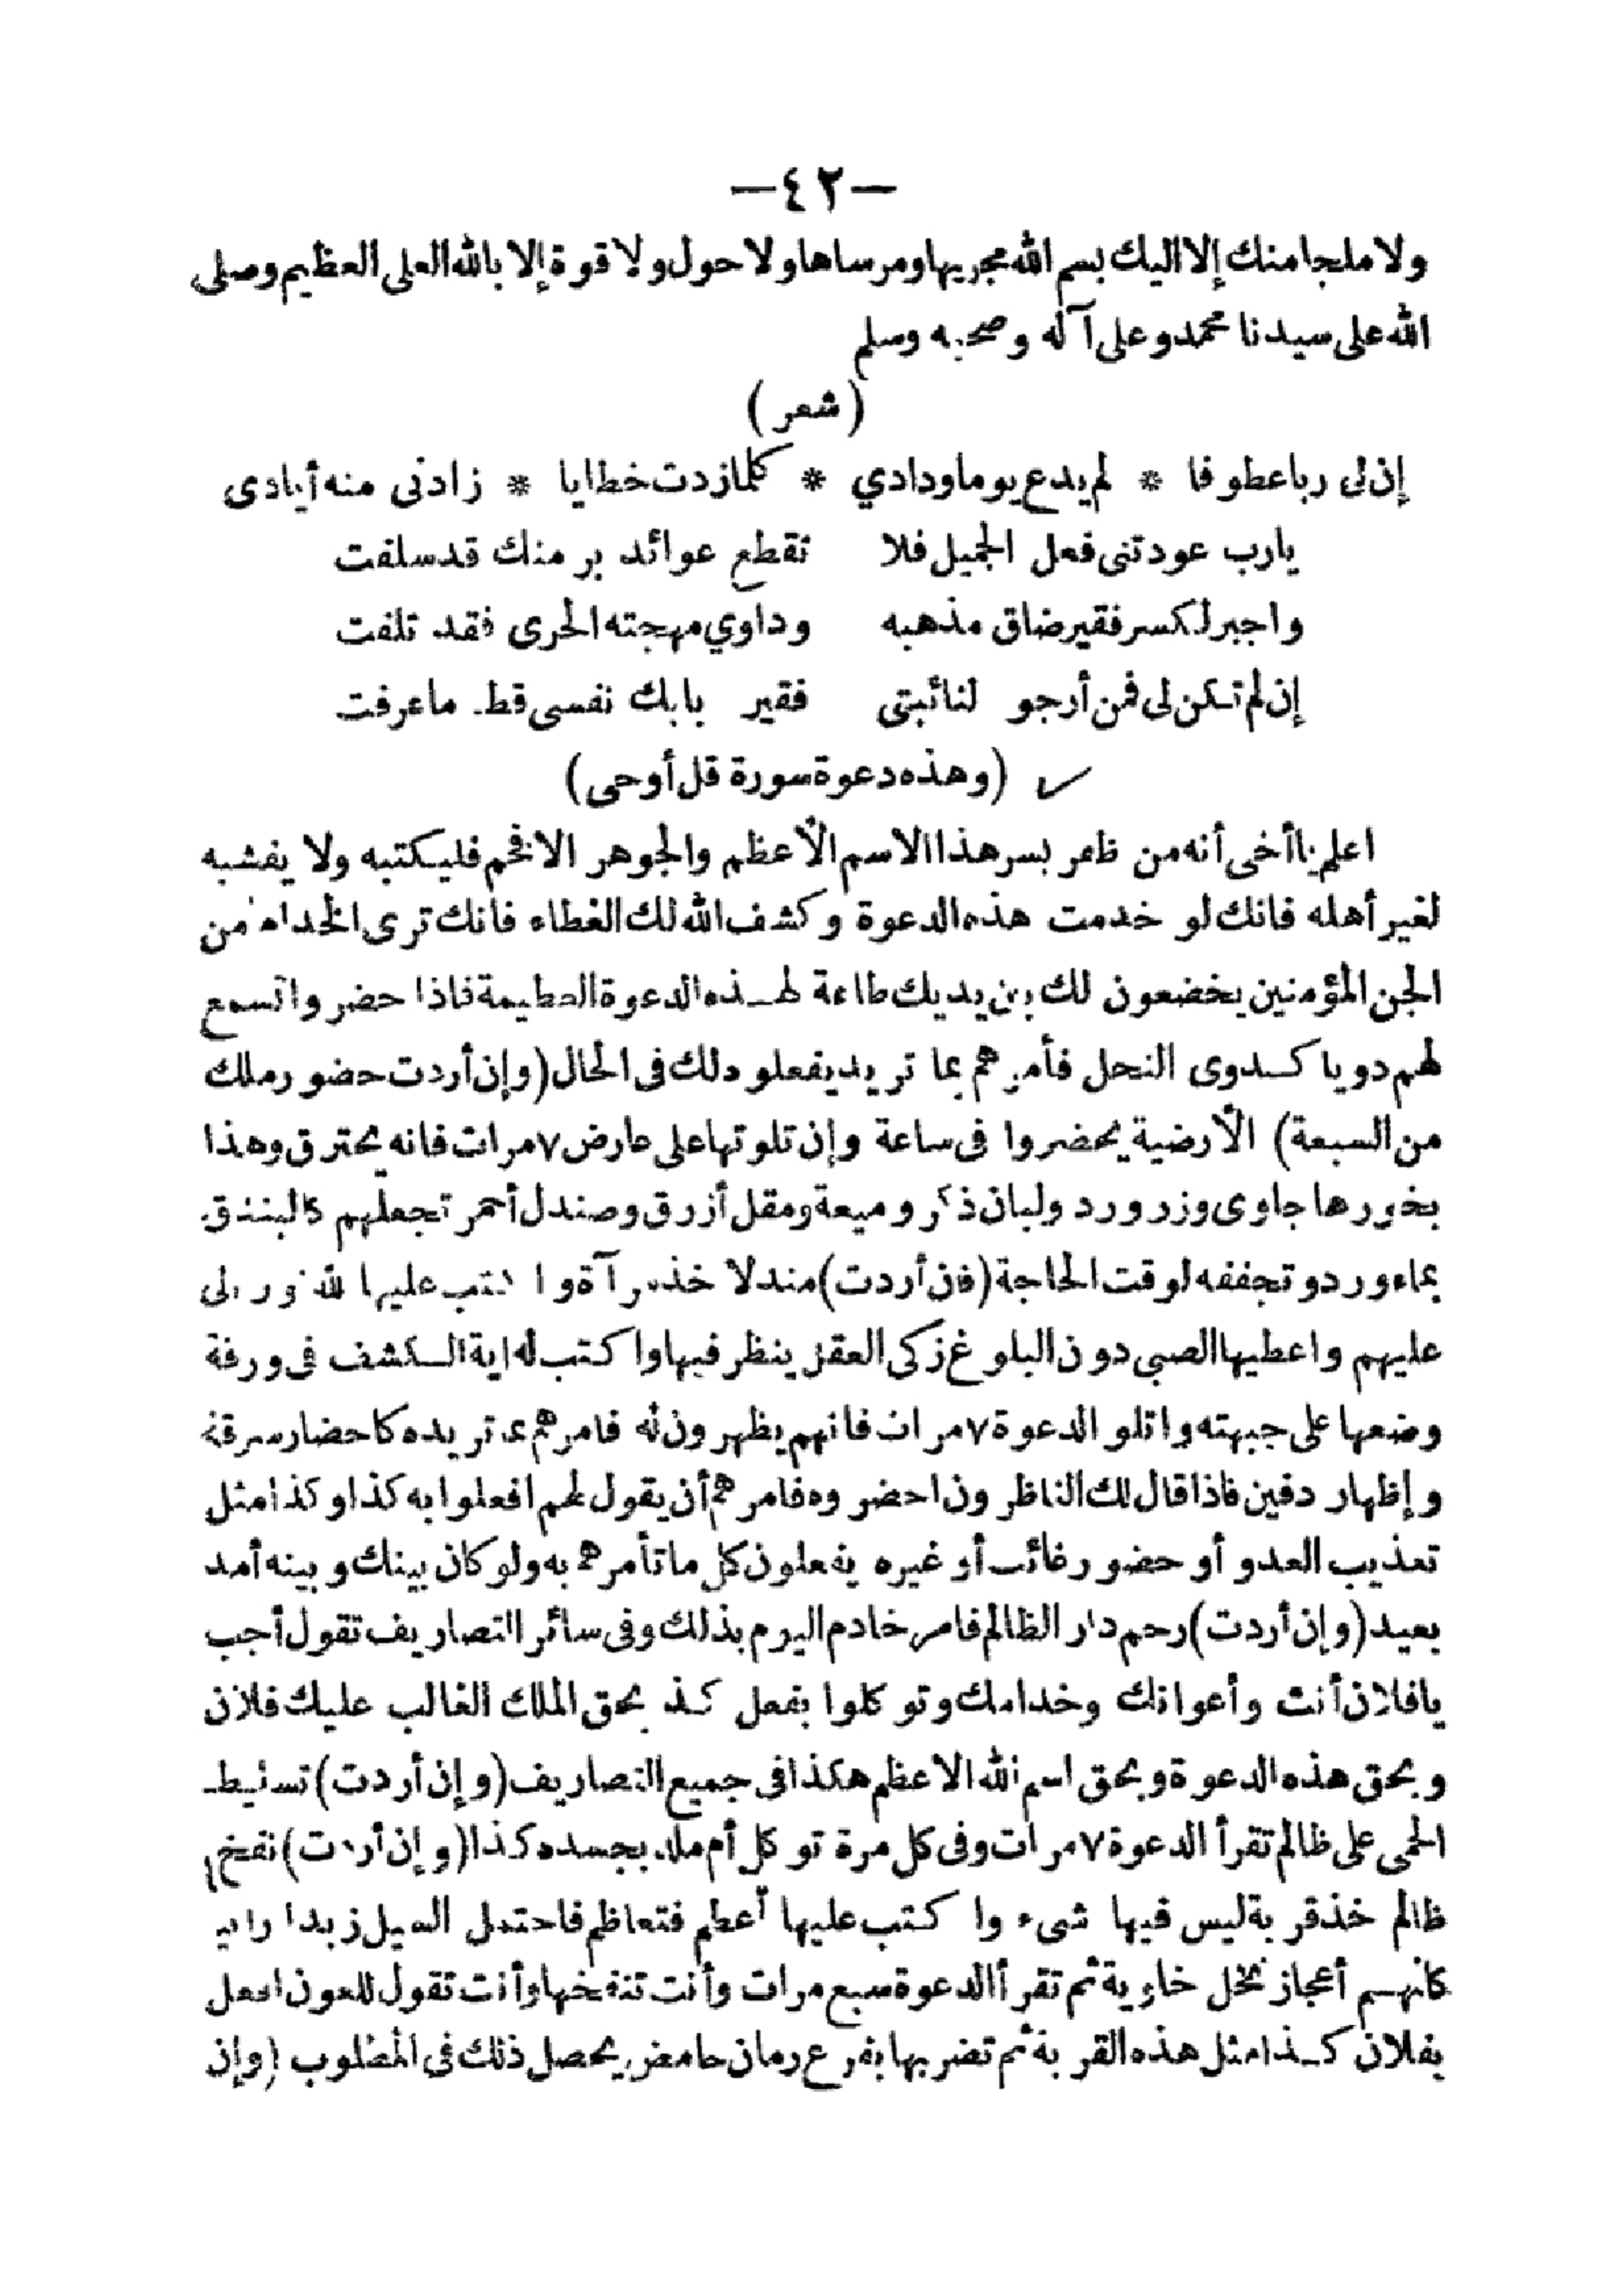 —٤٢—
ولا ملجا منك إلا اليك بسم الله مجريها ومرساها ولا حول ولا قوة إلا بالله العلى العظيم وصلى
الله على سيدنا محمد وعلى آله وصحبه وسلم
(شعر)
إن لى ربا عطوفا * لم يدع يوما ودادي * كلما زدت خطايا * زادنى منه أيادى
يارب عودتنى فعل الجميل فلا تقطع عوائد بر منك قد سلفت
واجبر لكسر فقير ضاق مذهبه وداوي مهجته الحرى فقد تلفت
إن لم تكن لى فمن أرجو لنائبتى فقير بابك نفسى قط ما عرفت
(وهذه دعوة سورة قل أوحى)
اعلم يا أخى أنه من ظفر بسر هذا الاسم الأعظم والجوهر الافخم فليكتبه ولا يفشبه
لغير أهله فانك لو خدمت هذه الدعوة وكشف الله لك الغطاء فانك ترى الخدام من
الجن المؤمنين يخضعون لك بين يديك طاعة لهذه الدعوة العظيمة فاذا حضروا تسمع
لهم دويا كدوى النحل فأمرهم بما تريد يفعلو ذلك فى الحال (وإن أردت حضور ملك
من السبعة) الأرضية يحضروا فى ساعة وإن تلوتها على عارض ٧ مرات فانه يحترق وهذا
بخورها جاوى وزر ورد ولبان ذكر وميعة ومقل أزرق وصندل أحمر تجعلهم كالبندق
بماء ورد وتجففه لوقت الحاجة (فان أردت) مندلا خذ مرآة واكتب عليها الله نور
عليهم واعطيها الصبى دون البلوغ زكى العقل ينظر فيها واكتب له اية الكشف فى ورقة
وضعها على جبهته واتلو الدعوة ٧ مرات فانهم يظهرون له فامرهم بما تريده كاحضار سرقة
وإظهار دفين فاذا قال لك الناظرون احضروه فامرهم أن يقول لهم افعلوا به كذا وكذا مثل
تعذيب العدو أو حضور غائب أو غيره يفعلون كل ما تأمرهم به ولو كان بينك وبينه أمد
بعيد (وإن أردت) رجم دار الظالم فامر خادم اليوم بذلك وفى سائر التصاريف تقول أجب
يا فلان أنت وأعوانك وخدامك وتوكلوا بفعل كذا بحق الملك الغالب عليك فلان
وبحق هذه الدعوة وبحق اسم الله الاعظم هكذا فى جميع التصاريف (وإن أردت) تسليط
الحمى على ظالم تقرأ الدعوة ٧ مرات وفى كل مرة توكل أم ملدم بجسده كذا (وإن أردت) نفخ
ظالم خذ قربة ليس فيها شىء واكتب عليها أعظم فتعاظم فاحتمل السيل زبدا رابيا
كأنهم أعجاز نخل خاوية ثم تقرأ الدعوة سبع مرات وأنت تنفخها وأنت تقول للعون افعل
بفلان كذا مثل هذه القربة ثم تضربها بفرع رمان حامض يحصل ذلك فى المطلوب (وإن